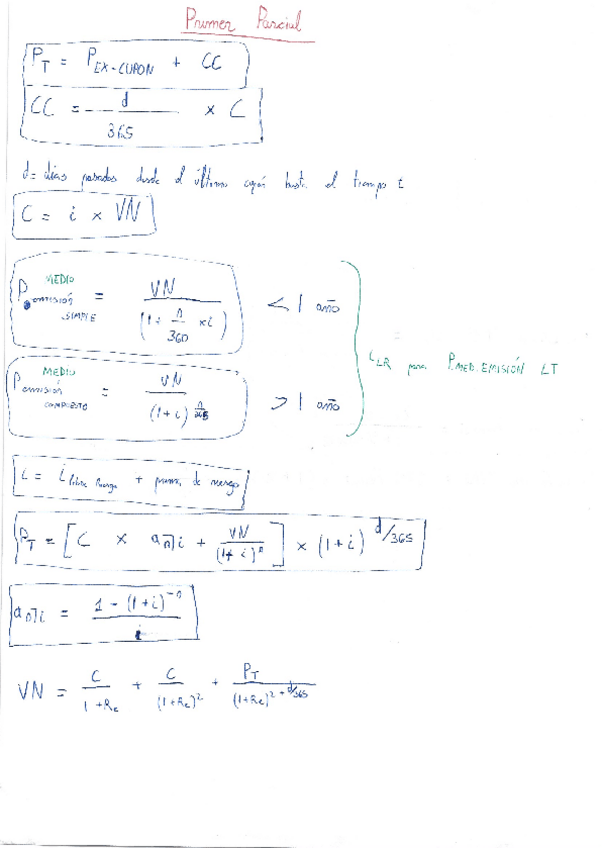 Primer Parcial
P_T = P_EX-CUPON + CC
CC = d/365 x C
d = días pasados desde el último cupón hasta el tiempo t
C = i x VN
P MEDIO emisión SIMPLE = VN / (1 + n/360 x i) < 1 año
P MEDIO emisión COMPUESTO = VN / (1 + i)^(n/365) > 1 año
i_LR para P.MED.EMISIÓN LT
i = i libre riesgo + prima de riesgo
P_T = [C x a_n¬i + VN/(1+i)^n] x (1+i)^(d/365)
a_n¬i = 1 - (1+i)^-n / i
VN = C/(1+R_e) + C/(1+R_e)^2 + P_T/(1+R_e)^(2+d/365)